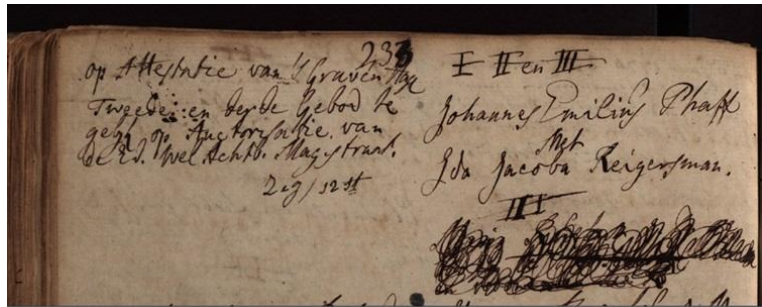 233
op Attestatie van 's Gravenhage
Tweede en derde Gebod te
op Auctorisatie van
de Ed. Wel Achtb. Magistraat.
I II en III
Johannes Emilius Phaff
Met
Ida Jacoba Reigersman.
III